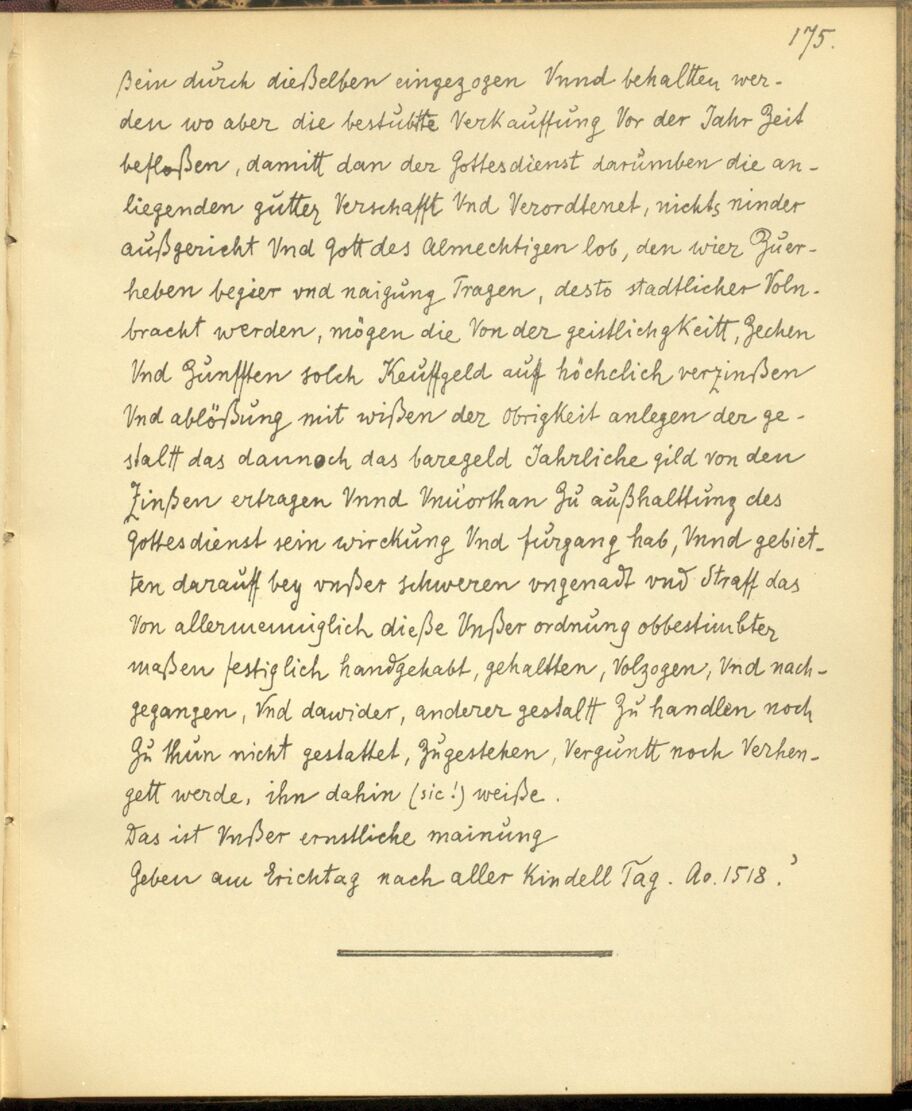 175.
ßein durch dießelben eingezogen Vnnd behaltten wer-
den wo aber die bestubtte Verkauffung Vor der Jahr Zeit
befloßen, damitt dan der Gottesdienst darumben die an-
liegenden gutter Verschafft Vnd Verordtenet, nichts minder
außgericht Vnd Gott des Almechtigen lob, den wier Zuer-
heben begier vnd naigung Tragen, desto stadtlicher Voln-
bracht werden, mögen die Von der geistlichgkeitt, Zechen
Vnd Zunfften solch Keuffgeld auff höchclich verzinßen
Vnd ablößung mit wißen der obrigkeit anlegen der ge-
stalt das dannoch das baregeld Jahrliche gild von den
Zinßen ertragen Vnnd Vnuorthan Zu außhalttung des
Gottesdienst sein wirckung Vnd furgang hab, Vnnd gebiet-
ten darauff bey vnßer schweren vngenadt vnd Straff das
Von allermenniglich dieße Vnßer ordnung obbestimbter
maßen festiglich handgehabt, gehaltten, Volzogen, Vnd nach-
gegangen, Vnd dawider, anderer gestaltt Zu handlen noch
Zu thun nicht gestattet, Zugestehen, Verguntt noch Verhen-
gett werde, ihn dahin (sic!) weiße.
Das ist Vnßer ernstliche mainung
Geben am Erichtag nach aller Kindell Tag. Ao. 1518.'